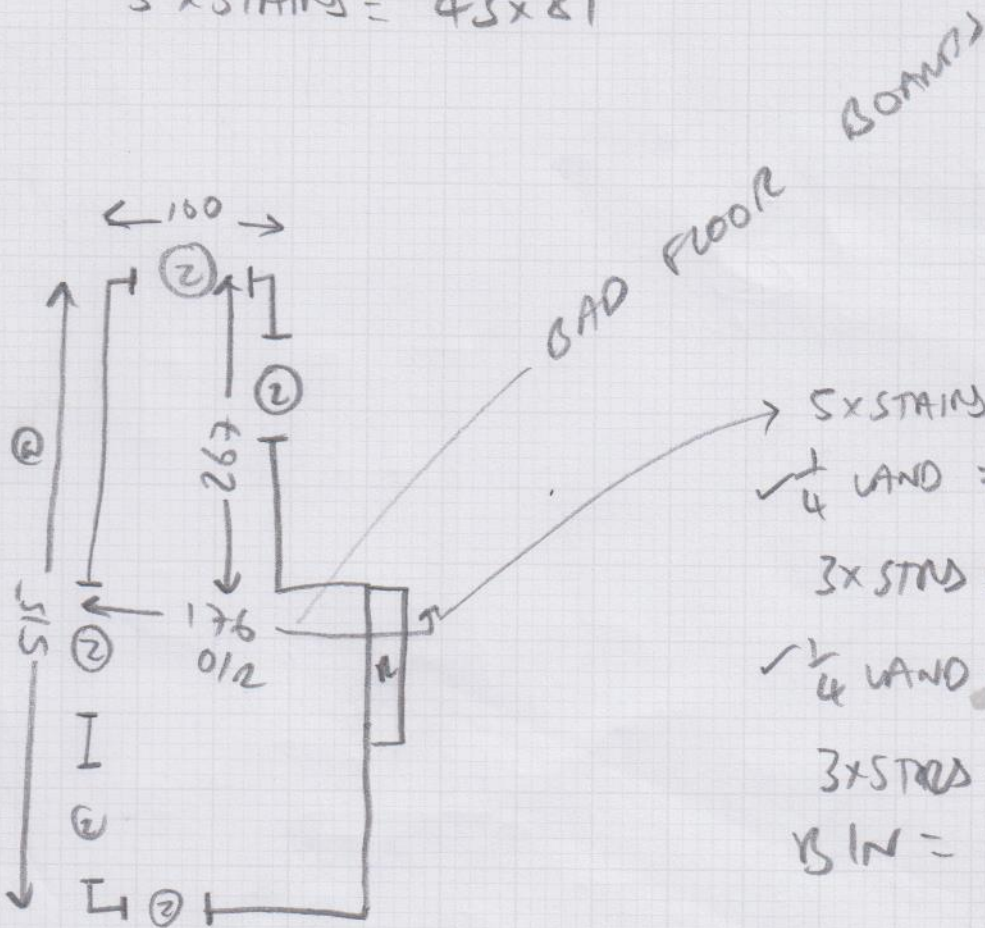 3 x STAIRS = 45 x 81
BAD FLOOR BOARDS
100
2
2
267
2
515
2
176
O/R
R
2
2
5 x STAIRS
✓ 1/4 LAND =
3 x STRS
✓ 1/4 LAND
3 x STRS
B IN =